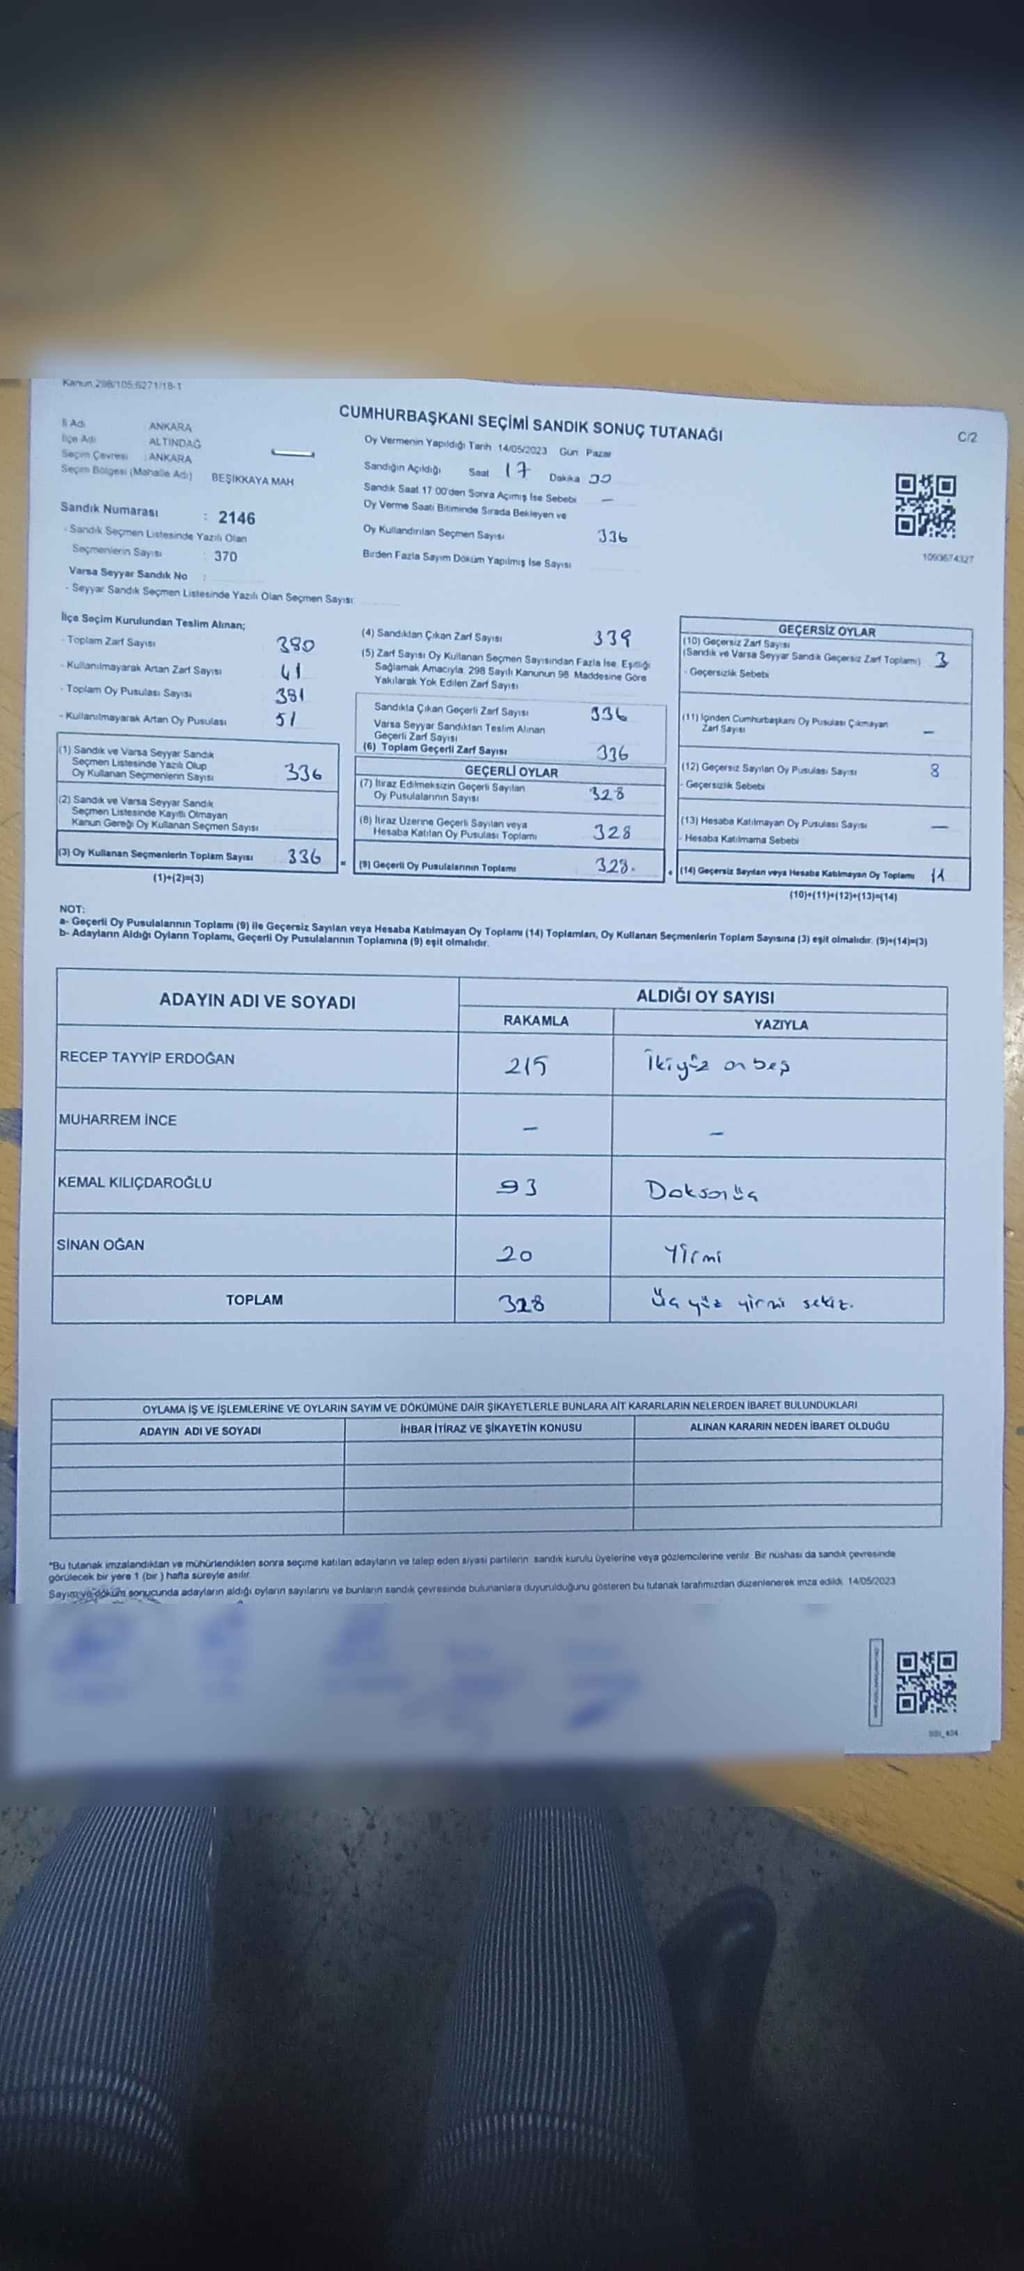 Kanun 298/105,6271/18-1
CUMHURBAŞKANI SEÇİMİ SANDIK SONUÇ TUTANAĞI
C/2
İl Adı ANKARA
İlçe Adı ALTINDAĞ
Seçim Çevresi : ANKARA
Seçim Bölgesi (Mahalle Adı) BEŞİKKAYA MAH
Sandık Numarası : 2146
- Sandık Seçmen Listesinde Yazılı Olan
Seçmenlerin Sayısı : 370
Varsa Seyyar Sandık No :
- Seyyar Sandık Seçmen Listesinde Yazılı Olan Seçmen Sayısı
Oy Vermenin Yapıldığı Tarih 14/05/2023 Gün Pazar
Sandığın Açıldığı Saat 17 Dakika
Sandık Saat 17 00'den Sonra Açımış İse Sebebi —
Oy Verme Saati Bitiminde Sırada Bekleyen ve
Oy Kullandırılan Seçmen Sayısı 336
Birden Fazla Sayım Döküm Yapılmış İse Sayısı
1093674327
İlçe Seçim Kurulundan Teslim Alınan;
- Toplam Zarf Sayısı 380
- Kullanılmayarak Artan Zarf Sayısı 41
- Toplam Oy Pusulası Sayısı 381
- Kullanılmayarak Artan Oy Pusulası 51
(1) Sandık ve Varsa Seyyar Sandık
Seçmen Listesinde Yazılı Olup
Oy Kullanan Seçmenlerin Sayısı 336
(2) Sandık ve Varsa Seyyar Sandık
Seçmen Listesinde Kayıtlı Olmayan
Kanun Gereği Oy Kullanan Seçmen Sayısı
(3) Oy Kullanan Seçmenlerin Toplam Sayısı 336 =
(1)+(2)=(3)
(4) Sandıktan Çıkan Zarf Sayısı 339
(5) Zarf Sayısı Oy Kullanan Seçmen Sayısından Fazla İse, Eşitliği
Sağlamak Amacıyla, 298 Sayılı Kanunun 98. Maddesine Göre
Yakılarak Yok Edilen Zarf Sayısı
Sandıkta Çıkan Geçerli Zarf Sayısı 336
Varsa Seyyar Sandıktan Teslim Alınan
Geçerli Zarf Sayısı
(6) Toplam Geçerli Zarf Sayısı 336
GEÇERLİ OYLAR
(7) İtiraz Edilmeksizin Geçerli Sayılan
Oy Pusulalarının Sayısı 328
(8) İtiraz Üzerine Geçerli Sayılan veya
Hesaba Katılan Oy Pusulası Toplamı 328
(9) Geçerli Oy Pusulalarının Toplamı 328.
GEÇERSİZ OYLAR
(10) Geçersiz Zarf Sayısı
(Sandık ve Varsa Seyyar Sandık Geçersiz Zarf Toplamı) 3
- Geçersizlik Sebebi
(11) İçinden Cumhurbaşkanı Oy Pusulası Çıkmayan
Zarf Sayısı —
(12) Geçersiz Sayılan Oy Pusulası Sayısı 8
- Geçersizlik Sebebi
(13) Hesaba Katılmayan Oy Pusulası Sayısı —
- Hesaba Katılmama Sebebi
(14) Geçersiz Sayılan veya Hesaba Katılmayan Oy Toplamı 11
(10)+(11)+(12)+(13)=(14)
NOT:
a- Geçerli Oy Pusulalarının Toplamı (9) ile Geçersiz Sayılan veya Hesaba Katılmayan Oy Toplamı (14) Toplamları, Oy Kullanan Seçmenlerin Toplam Sayısına (3) eşit olmalıdır. (9)+(14)=(3)
b- Adayların Aldığı Oyların Toplamı, Geçerli Oy Pusulalarının Toplamına (9) eşit olmalıdır.
ADAYIN ADI VE SOYADI ALDIĞI OY SAYISI
RAKAMLA YAZIYLA
RECEP TAYYİP ERDOĞAN 215 İkiyüz onbeş
MUHARREM İNCE — —
KEMAL KILIÇDAROĞLU 93 Doksanüç
SİNAN OĞAN 20 Yirmi
TOPLAM 328 Üç yüz yirmi sekiz.
OYLAMA İŞ VE İŞLEMLERİNE VE OYLARIN SAYIM VE DÖKÜMÜNE DAİR ŞİKAYETLERLE BUNLARA AİT KARARLARIN NELERDEN İBARET BULUNDUKLARI
ADAYIN ADI VE SOYADI İHBAR İTİRAZ VE ŞİKAYETİN KONUSU ALINAN KARARIN NEDEN İBARET OLDUĞU
*Bu tutanak imzalandıktan ve mühürlendikten sonra seçime katılan adayların ve talep eden siyasi partilerin sandık kurulu üyelerine veya gözlemcilerine verilir. Bir nüshası da sandık çevresinde
görülecek bir yere 1 (bir) hafta süreyle asılır.
Sayım ve döküm sonucunda adayların aldığı oyların sayılarını ve bunların sandık çevresinde bulunanlara duyurulduğunu gösteren bu tutanak tarafımızdan düzenlenerek imza edildi. 14/05/2023